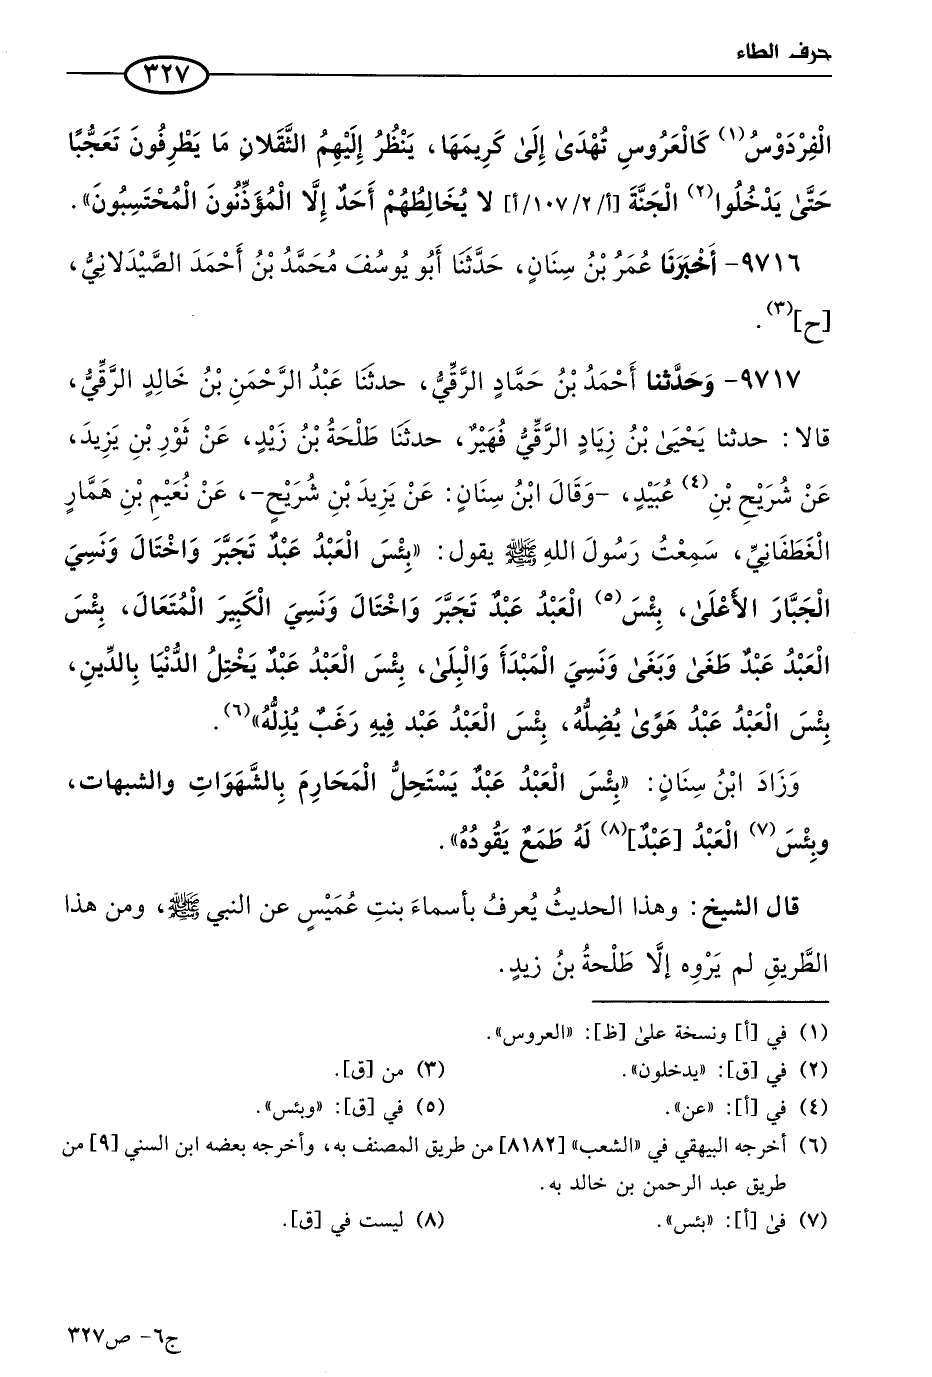 حرف الطاء
٣٢٧
الْفِرْدَوْسُ(١) كَالْعَرُوسِ تُهْدَىٰ إِلَىٰ كَرِيمَهَا، يَنْظُرُ إِلَيْهِمُ الثَّقَلانِ مَا يَطْرِفُونَ تَعَجُّبًا
حَتَّىٰ يَدْخُلُوا(٢) الْجَنَّةَ [أ/١٠٧/٢/أ] لا يُخَالِطُهُمْ أَحَدٌ إِلَّا الْمُؤَذِّنُونَ الْمُحْتَسِبُونَ».
٩٧١٦- أَخْبَرَنَا عُمَرُ بْنُ سِنَانٍ، حَدَّثَنَا أَبُو يُوسُفَ مُحَمَّدُ بْنُ أَحْمَدَ الصَّيْدَلانِيُّ،
[ح](٣).
٩٧١٧- وَحَدَّثنا أَحْمَدُ بْنُ حَمَّادٍ الرَّقِّيُّ، حدثنَا عَبْدُ الرَّحْمَنِ بْنُ خَالِدٍ الرَّقِّيُّ،
قالا: حدثنا يَحْيَىٰ بْنُ زِيَادٍ الرَّقِّيُّ فُهَيْرٌ، حدثنَا طَلْحَةُ بْنُ زَيْدٍ، عَنْ ثَوْرِ بْنِ يَزِيدَ،
عَنْ شُرَيْحِ بْنِ(٤) عُبَيْدٍ، -وَقَالَ ابْنُ سِنَانٍ: عَنْ يَزِيدَ بْنِ شُرَيْحٍ-، عَنْ نُعَيْمِ بْنِ هَمَّارٍ
الْغَطَفَانِيِّ، سَمِعْتُ رَسُولَ اللهِ ﷺ يقول: «بِئْسَ الْعَبْدُ عَبْدٌ تَجَبَّرَ وَاخْتَالَ وَنَسِيَ
الْجَبَّارَ الأَعْلَىٰ، بِئْسَ(٥) الْعَبْدُ عَبْدٌ تَجَبَّرَ وَاخْتَالَ وَنَسِيَ الْكَبِيرَ الْمُتَعَالَ، بِئْسَ
الْعَبْدُ عَبْدٌ طَغَىٰ وَبَغَىٰ وَنَسِيَ الْمَبْدَأَ وَالْبِلَىٰ، بِئْسَ الْعَبْدُ عَبْدٌ يَخْتِلُ الدُّنْيَا بِالدِّينِ،
بِئْسَ الْعَبْدُ عَبْدُ هَوًىٰ يُضِلُّهُ، بِئْسَ الْعَبْدُ عَبْد فِيهِ رَغَبٌ يُذِلُّهُ»(٦).
وَزَادَ ابْنُ سِنَانٍ: «بِئْسَ الْعَبْدُ عَبْدٌ يَسْتَحِلُّ الْمَحَارِمَ بِالشَّهَوَاتِ والشبهات،
وبِئْسَ(٧) الْعَبْدُ [عَبْدٌ](٨) لَهُ طَمَعٌ يَقُودُهُ».
قال الشيخ: وهذا الحديثُ يُعرفُ بأسماءَ بنتِ عُمَيْسٍ عن النبي ﷺ، ومن هذا
الطَّريقِ لم يَرْوِه إلَّا طَلْحةُ بنُ زيدٍ.
(١) في [أ] ونسخة علىٰ [ظ]: «العروس».
(٢) في [ق]: «يدخلون».
(٣) من [ق].
(٤) في [أ]: «عن».
(٥) في [ق]: «وبئس».
(٦) أخرجه البيهقي في «الشعب» [٨١٨٢] من طريق المصنف به، وأخرجه بعضه ابن السني [٩] من
طريق عبد الرحمن بن خالد به.
(٧) فىٰ [أ]: «بئس».
(٨) ليست في [ق].
ج٦- ص٣٢٧